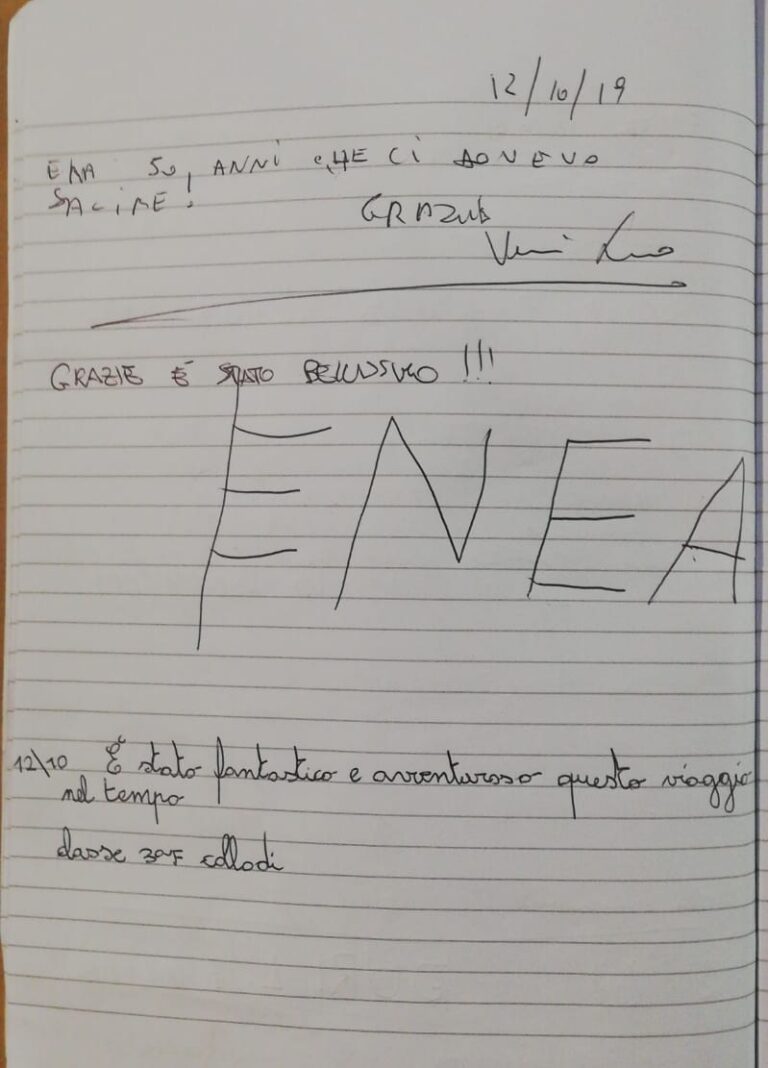 12/10/19
ERA 50, ANNI CHE CI DOVEVO
SALIRE!
GRAZIE
GRAZIE È STATO BELLISSIMO !!!
ENEA
12\10 È stato fantastico e avventuroso questo viaggio
nel tempo
classe 3ªF collodi